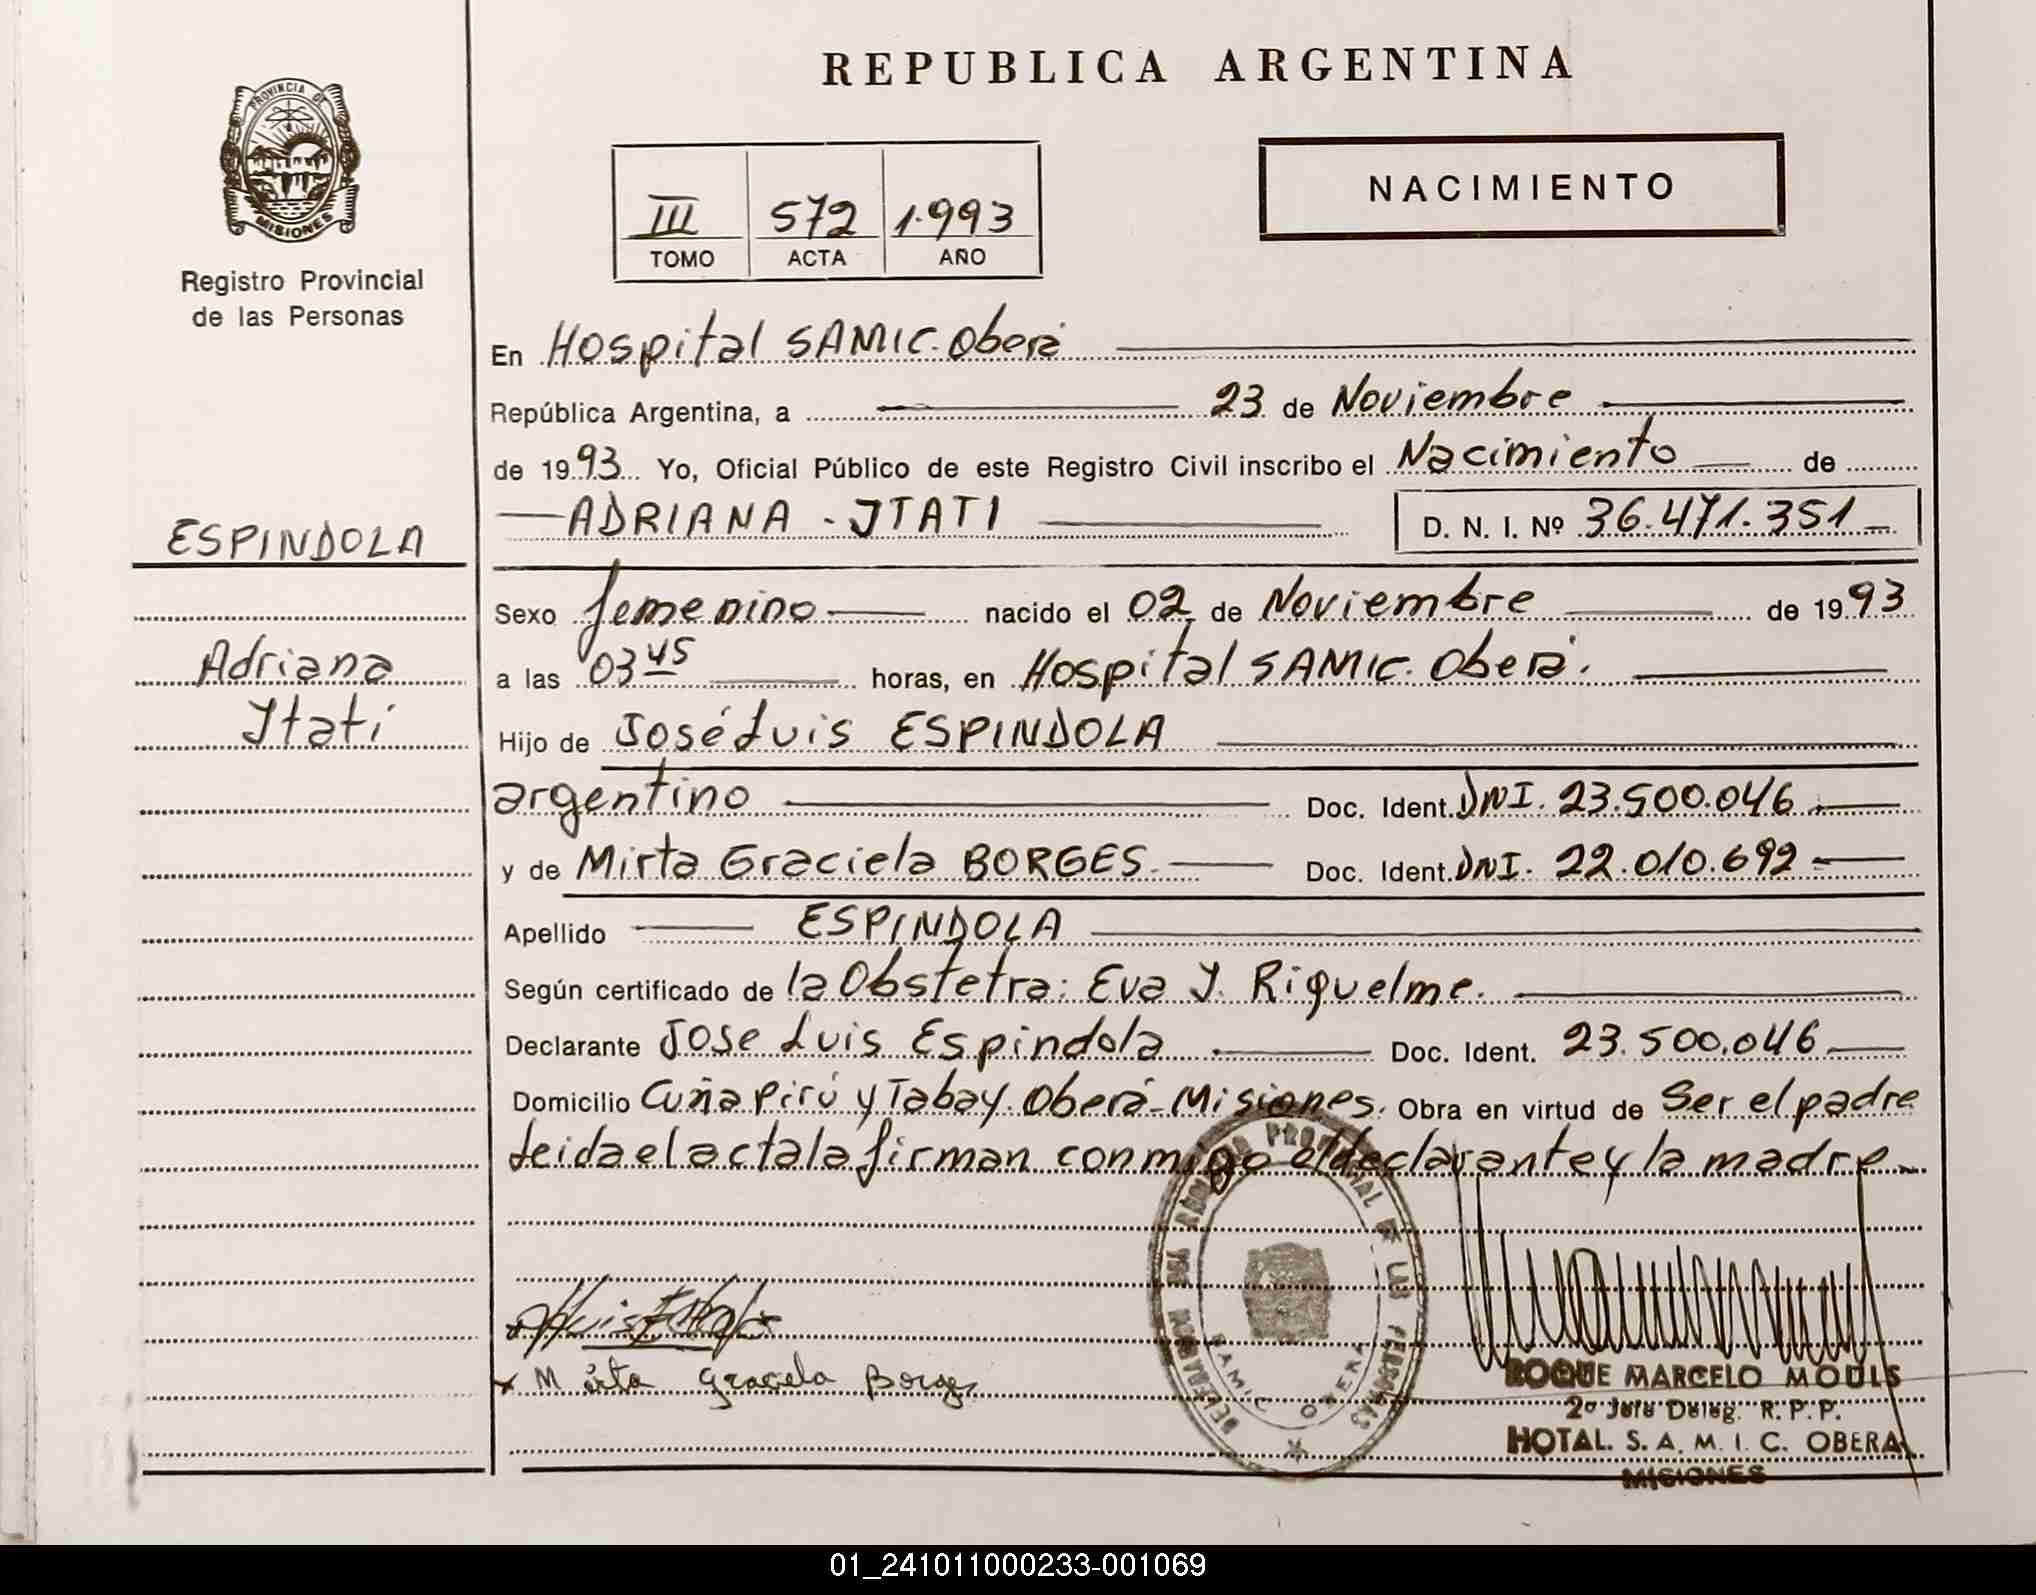 REPUBLICA ARGENTINA
PROVINCIA DE
MISIONES
Registro Provincial
de las Personas
III 572 1.993
TOMO ACTA AÑO
NACIMIENTO
En Hospital SAMIC. Oberá
República Argentina, a 23 de Noviembre
de 1993 Yo, Oficial Público de este Registro Civil inscribo el Nacimiento de
ADRIANA - ITATI D. N. I. Nº 36.471.351
ESPINDOLA
Adriana
Itatí
Sexo femenino nacido el 02 de Noviembre de 1993
a las 03 45 horas, en Hospital SAMIC. Oberá.
Hijo de José Luis ESPINDOLA
argentino Doc. Ident. DNI. 23.500.046
y de Mirta Graciela BORGES. Doc. Ident. DNI. 22.010.692
Apellido ESPINDOLA
Según certificado de la Obstetra: Eva I. Riquelme.
Declarante Jose Luis Espindola Doc. Ident. 23.500.046
Domicilio Cuña Pirú y Tabay. Oberá - Misiones. Obra en virtud de Ser el padre
Leida el acta la firman conmigo el declarante y la madre
x Mirta Graciela Borges
REGISTRO PROVINCIAL DE LAS PERSONAS
SAMIC OBERA
ROQUE MARCELO MOULS
2º Jefe Deleg. R. P. P.
HOTAL. S. A. M. I. C. OBERA
MISIONES
01_241011000233-001069